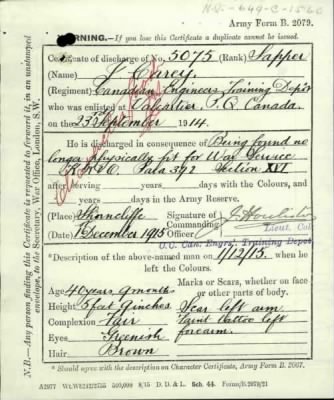 Army Form B. 2079.
WARNING.—If you lose this Certificate a duplicate cannot be issued.
Certificate of discharge of No. 5075 (Rank) Sapper
(Name) J Carey.
(Regiment) Canadian Engineers Training Depot
who was enlisted at Valcartier, P.Q. Canada.
on the 23rd September 1914.
He is discharged in consequence of Being found no
longer physically fit for War Service
Para 392 Section XVI
after serving years days with the Colours, and
years days in the Army Reserve.
(Place) Shorncliffe Signature of
Commanding
(Date) 1 December 1915 Officer
Lieut. Col.
O.C. Can. Engrs. Training Depot
*Description of the above-named man on 1/12/15 when he
left the Colours.
Age 40 years 9 months Marks or Scars, whether on face
Height 5 feet 9 inches or other parts of body.
Complexion Fair Scar left arm
Eyes Greenish Faint Tattoo left
Hair Brown forearm.
* Should agree with the description on Character Certificate, Army Form B. 2067.
A2077 500,000 8/15 D. D. & L. Sch. 44. Forms/B.2079/21
N.B.—Any person finding this Certificate is requested to forward it, in an unstamped
envelope, to the Secretary, War Office, London, S.W.